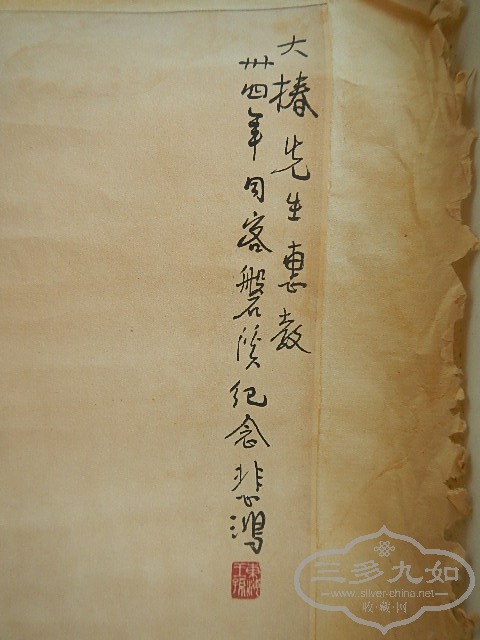 大椿先生惠教
卅四年同客磐溪紀念悲鴻
東海王孫
三多九如
www.silver-china.net
收·藏·网